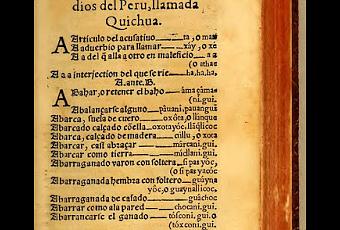 dios del Peru, llamada
Quichua.
A Articulo del acusatiuo — ta, o man
A aduerbio para llamar — xày, o xé
A a del q̃ alla a otro en maleficio — a a
(o athae
A a a interjection del que se rie — ha, ha, ha.
A. ante. B.
ABahar, o retener el baho — ama çamani.
gui.
Abalançarse alguno — pàuani, pauangui
Abarca, suela de cuero — oxòta, o llanque
Abarcado calçado coēlla — oxotayòc, llãq̃licoc
Abarca, calçado de madera — cullu, o xoxa
Abarcar, casi abraçar — mircani. gui.
Abarcar como tierra — micllani. gui.
Abarraganado varon con soltera — sipas yòc,
(o sipayacóc
Abarraganada hembra con soltero — guàyna
yòc, o guaynallicoc.
Abarraganada de casado — guácho
Abarrar como ala pared — chocani. gui.
Abarrancarse el ganado — tósconi. gui. o
(tóxconi. gui